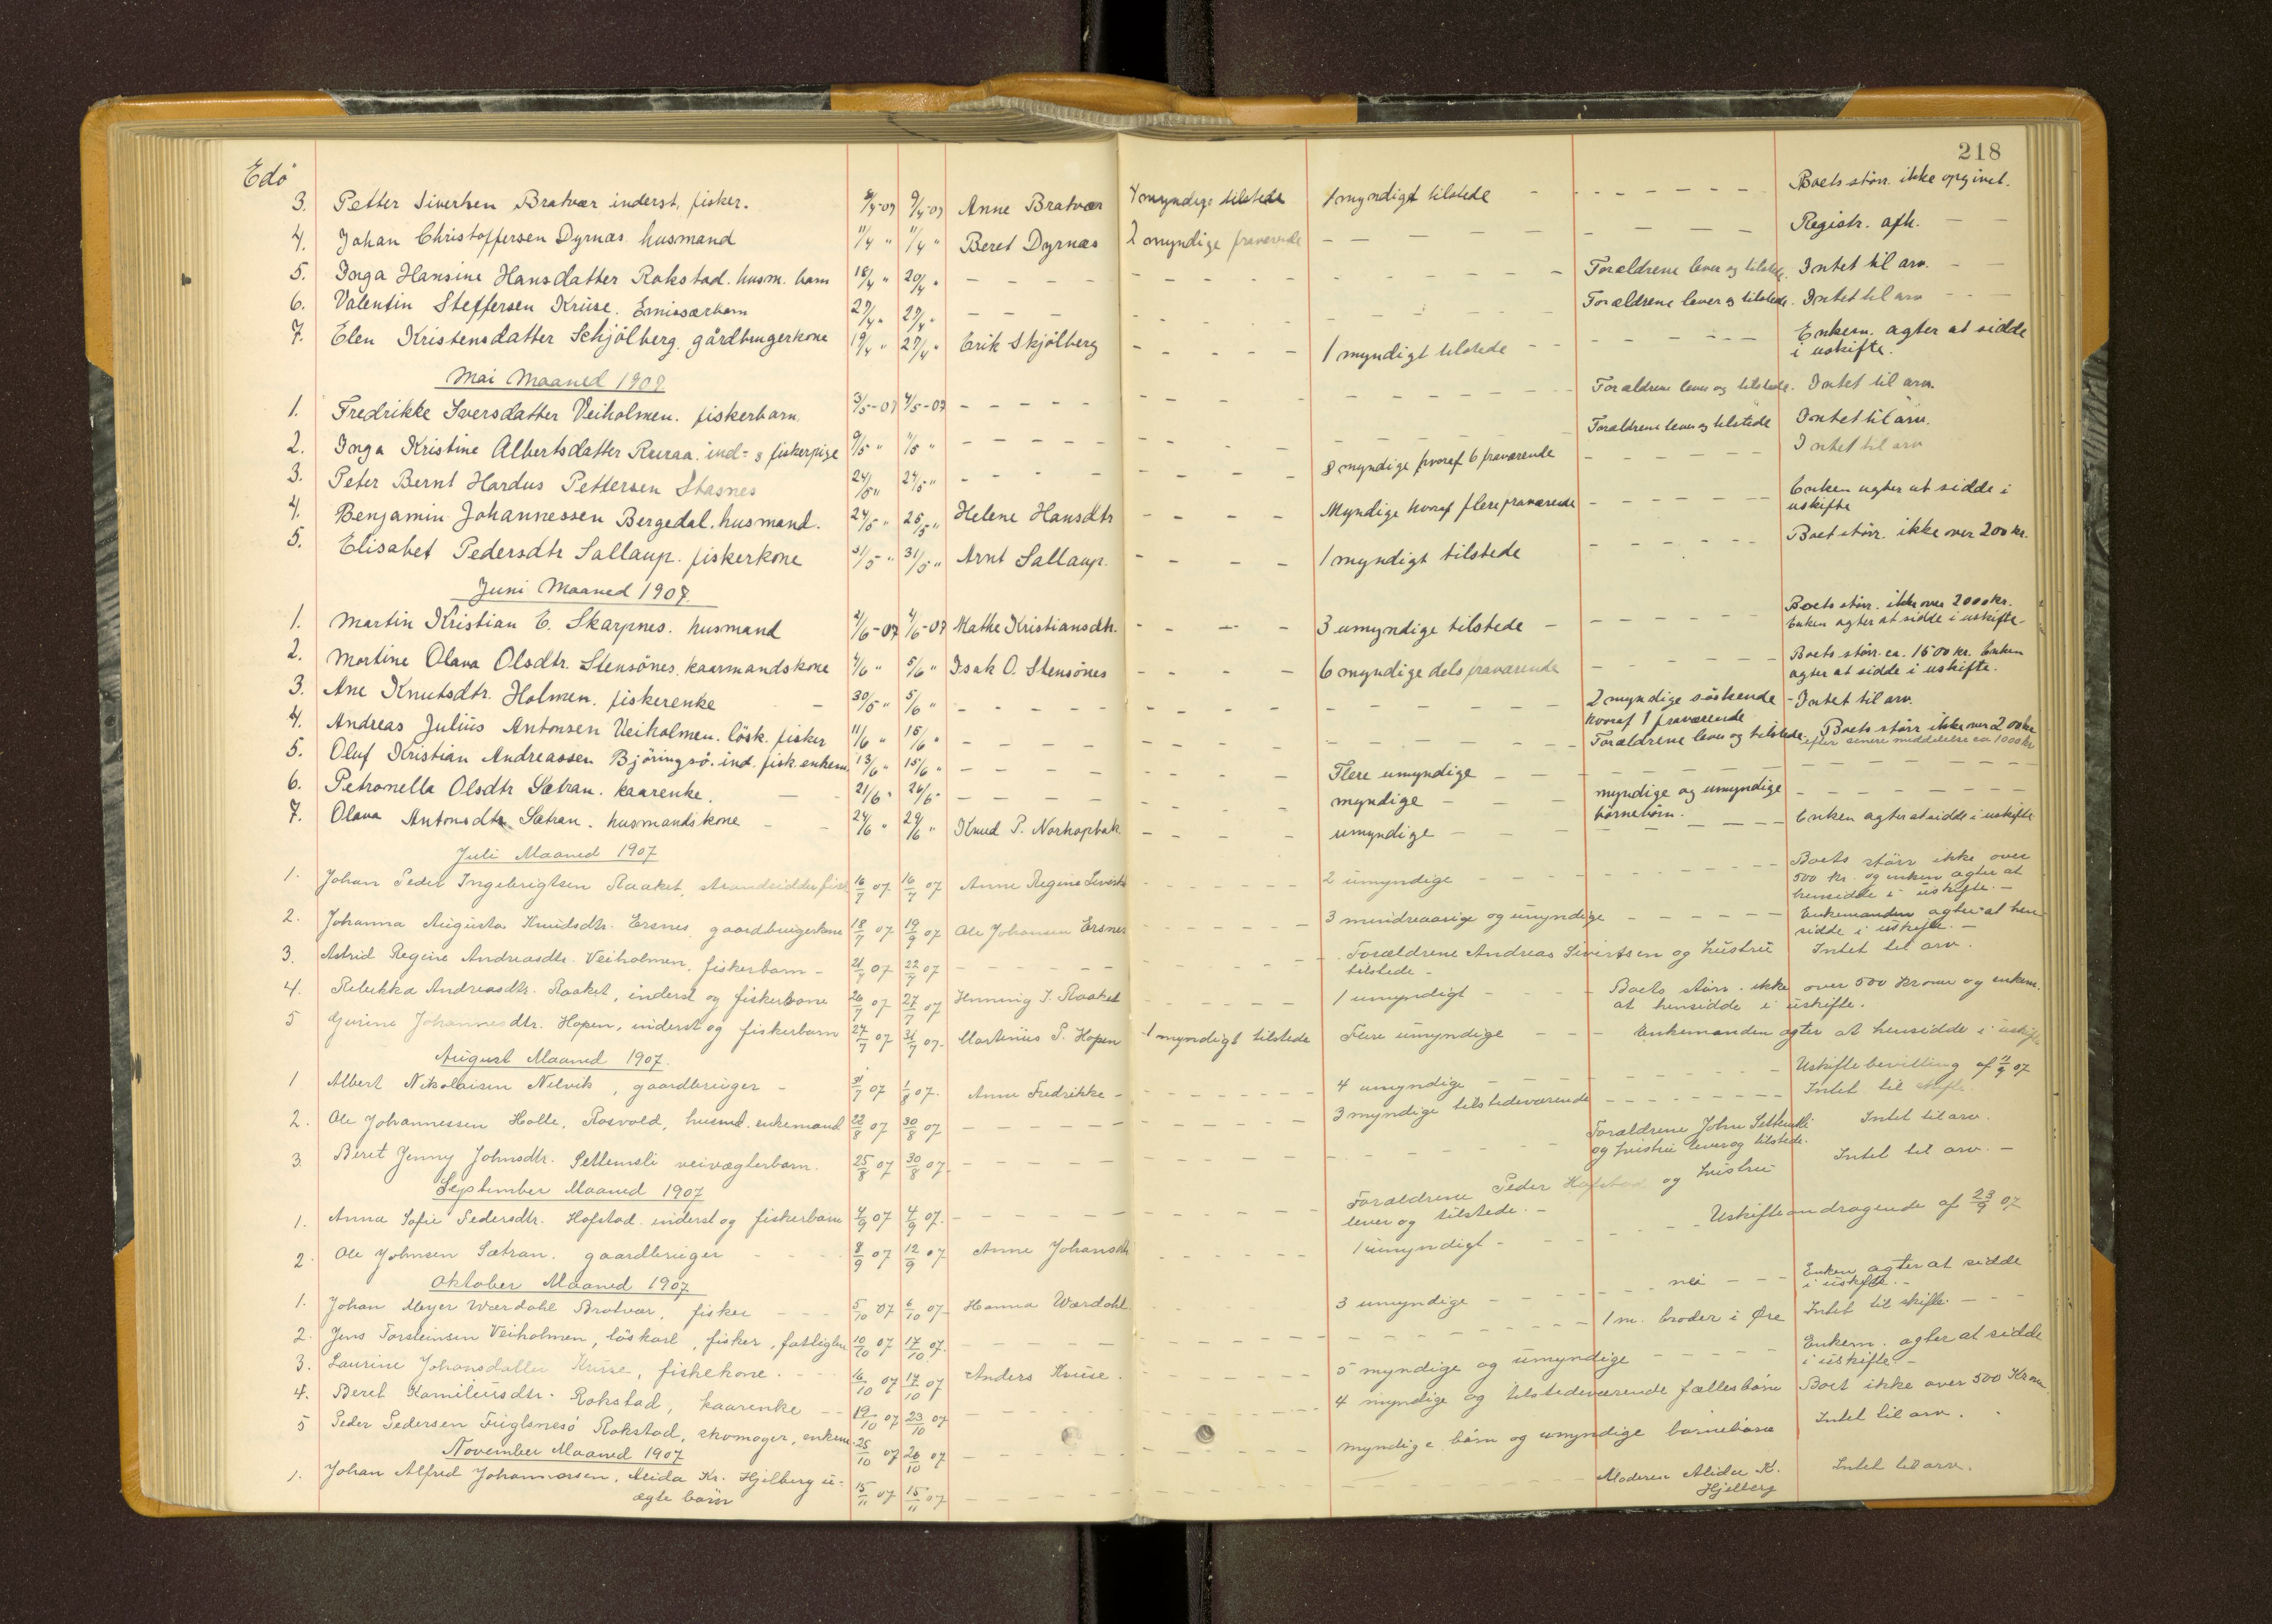 218
Edö
3. Petter Sivertsen Bratvær inderst, fisker. 9/4-07 Anne Bratvær 4 myndige tilstede 1 myndigt tilstede - - - - - - Boets störr. ikke opgivet.
4. Johan Christoffersen Dyrnæs husmand 11/4 " 11/4 " Beret Dyrnæs 2 myndige fraværende - - - - - - Registr. afh. - -
5. Inga Hansine Hansdatter Rokstad. husm. barn 18/4 " 20/4 " - - - - Forældrene lever og tilstede. Intet til arv. - -
6. Valentin Steffensen Kruse. Emissærbarn 27/4 " 27/4 " - - - Forældrene lever og tilstede. Intet til arv - -
7. Elen Kristensdatter Schjölberg. gårdbrugerkone 19/4 " 27/4 " Erik Skjölberg - - - - - 1 myndigt tilstede - - - - - - Enkem. agter at sidde
i uskifte.
Mai Maaned 1907
1. Fredrikke Iversdatter Veiholmen. fiskerbarn 3/5-07 4/5-07 - - - - - Forældrene lever og tilstede. Intet til arv.
2. Inga Kristine Albertsdatter Ruraa. ind= & fiskerpige 9/5 " 11/5 " - - - - - Forældrene lever og tilstede Intet til arv.
3. Peter Bernt Hardus Pettersen Stasnes 24/5 " 24/5 " - - - - 8 myndige hvoraf 6 fraværende - - - - - Intet til arv
4. Benjamin Johannessen Bergedal. husmand. 24/5 " 25/5 " Helene Hansdtr - - - - Myndige hvoraf flere fraværende - - - - - Enken agter at sidde i
uskifte
5. Elisabet Pedersdtr Sallaup. fiskerkone 31/5 " 31/5 " Arnt Sallaup. - - - - 1 myndigt tilstede - - - - - Boet störr. ikke over 200 kr.
Juni Maaned 1907.
1. Martin Kristian E. Skarpnes. husmand 2/6-07 4/6-07 Mathe Kristiansdtr. - - - - 3 umyndige tilstede - - - - - Boets störr. ikke over 2000 kr.
Enken agter at sidde i uskifte-
2. Martine Olava Olsdtr. Stensönes. kaarmandskone 4/6 " 5/6 " Isak O. Stensönes - - - - 6 myndige dels fraværende - - - - - Boets störr. ca. 1600 kr. Enken
agter at sidde i uskifte.
3. Ane Knutsdtr. Holmen. fiskerenke - 30/5 " 5/6 " - - - - - 2 myndige söskende - Intet til arv.
hvoraf 1 fraværende
4. Andreas Julius Antonsen Veiholmen. lösk. fisker 11/6 " 15/6 " - - - - Forældrene lever og tilstede. Boets störr ikke over 200 kr
efter senere meddelelse ca 1000 kr
5. Oluf Kristian Andreassen Björingsö. ind. fisk. enkem. 13/6 " 15/6 " - - - - - Flere umyndige - - - - -
6. Petronella Olsdtr Sætran. kaarenke. - 21/6 " 26/6 " - - - - - myndige - - - myndige og umyndige - - - - -
börnebörn.
7. Olava Antonsdtr Sætran. husmandskone - - 24/6 " 29/6 " Knud P. Norhopbak - - - - umyndige - - - - - Enken agter at sidde i uskifte
Juli Maaned 1907
1. Johan Peder Ingebrigtsen Raaket, strandsidder 16/7 07 16/7 07 Anne Regine - - - - - 2 umyndige - - - - - Boets störr ikke over
500 kr. og enken agter at
hensidde i uskifte. -
2. Johanna Augusta Knudsdtr. Ersnes, gaardbrugerkone 18/7 07 19/9 07 Ole Johansen Ersnes - - - - - 3 mindreaarige og umyndige - - - - - Enkemanden agter at hen-
sidde i uskifte. -
3. Astrid Regine Andreasdtr. Veiholmen, fiskerbarn - 21/7 07 22/7 07 - - - - - Forældrene Andreas Sivertsen og hustru Intet til arv.
tilstede -
4. Rebekka Andreasdtr. Raaket, inderst og fiskerkone 26/7 07 27/7 07 Henning J. Raaket - - - - - 1 umyndigt - - - - Boets störr. ikke over 500 Kroner og enkem.
at hensidde i uskifte.
5 Gurine Johannesdtr. Hopen, inderst og fiskerbarn 27/7 07 31/7 07. Martinius P. Hopen 1 myndigt tilstede Flere umyndige - - - Enkemanden agter at hensidde i uskifte
August Maaned 1907.
1 Albert Nikolaisen Nelvik, gaardbruger - 31/7 07 1/8 07. Anne Fredrikke - - - - - 4 umyndige - - - - - Uskiftebevilling af 11/9 07
2. Ole Johannessen Holle, Rosvold, husmd. enkemand 22/8 07 30/8 07 - - - - - 3 myndige tilstedeværende - - - - - Intet til skifte.
3. Beret Jenny Johnsdtr. Settemsli veivogterbarn. 25/8 07 30/8 07. - - - - - Forældrene John Settemsli Intet til arv.
og hustru lever og tilstede.
September Maaned 1907
1. Anna Sofie Pedersdtr. Hofstad. inderst og fiskerbarn 4/9 07 4/9 07. - - - - - Forældrene Peder Hofstad og hustru Intet til arv. -
lever og tilstede. -
2. Ole Johnsen Sætran. gaardbruger - - - 8/9 07 12/9 07 Anne Johansdtr - - - - - 1 umyndigt - - - - Uskifteandragende af 23/9 07
Oktober Maaned 1907.
1. Johan Meyer Værdahl Bratvær, fisker - - - 5/10 07 6/10 07 - Hanna Værdahl - - - - - 3 umyndige - - - - nei - - - Enken agter at sidde
i uskifte. -
2. Jens Torsteinsen Veiholmen, löskarl, fisker, fattiglem 10/10 07 17/10 07. - - - - - 1 m. broder i Øre Intet til skifte. - -
3. Laurine Johansdatter Kruse, fiskekone. - - - 16/10 07 17/10 07 Anders Kruse. - - - - - 5 myndige og umyndige - - - - - Enkem. agter at sidde
i uskifte. -
4. Beret Kamiliusdtr. Rokstad, kaarenke - - 19/10 07 23/10 07 - - - - - 4 myndige og tilstedeværende fællesbörn Boet ikke over 500 Kroner
5 Peder Pedersen Fuglsnesö Rokstad, skomager, enkem. 25/10 07 26/10 07 - - - - - myndige börn og umyndige barnebörn Intet til arv.
November Maaned 1907
1. Johan Alfred Johannessen, Alida Kr. Hjelberg u- 15/11 07 15/11 07 - - - - - Moderen Alida K. Intet til arv.
ægte barn Hjelberg